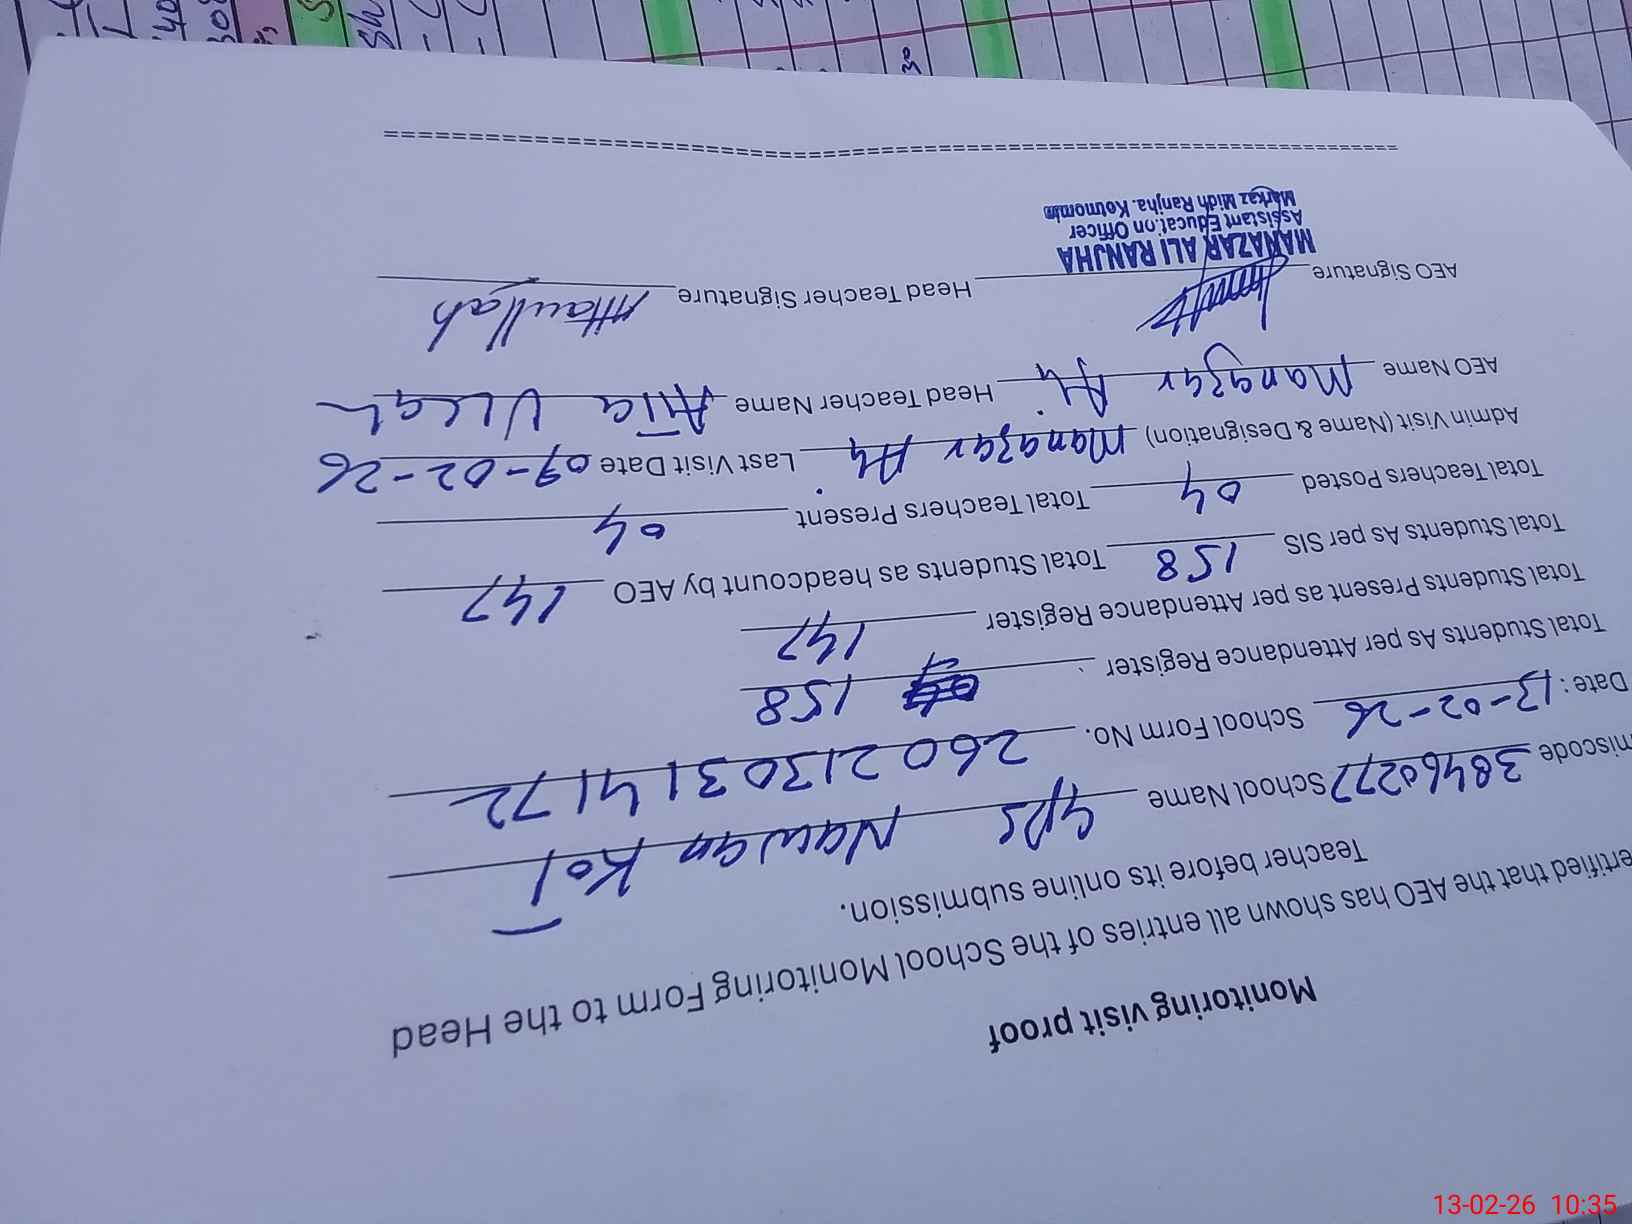 Monitoring visit proof
ertified that the AEO has shown all entries of the School Monitoring Form to the Head
Teacher before its online submission.
miscode 38460277 School Name GPS Nawan Kot
Date: 13-02-26 School Form No. 2602130314172
Total Students As per Attendance Register 158
Total Students Present as per Attendance Register 147
Total Students As per SIS 158 Total Students as headcount by AEO 147
Total Teachers Posted 04 Total Teachers Present 04
Admin Visit (Name & Designation) Manazar Ali Last Visit Date 09-02-26
AEO Name Manazar Ali Head Teacher Name Atta Ullah
AEO Signature Head Teacher Signature Attaullah
MANAZAR ALI RANJHA
Assistant Education Officer
Markaz Midh Ranjha. Kotmomin
13-02-26 10:35